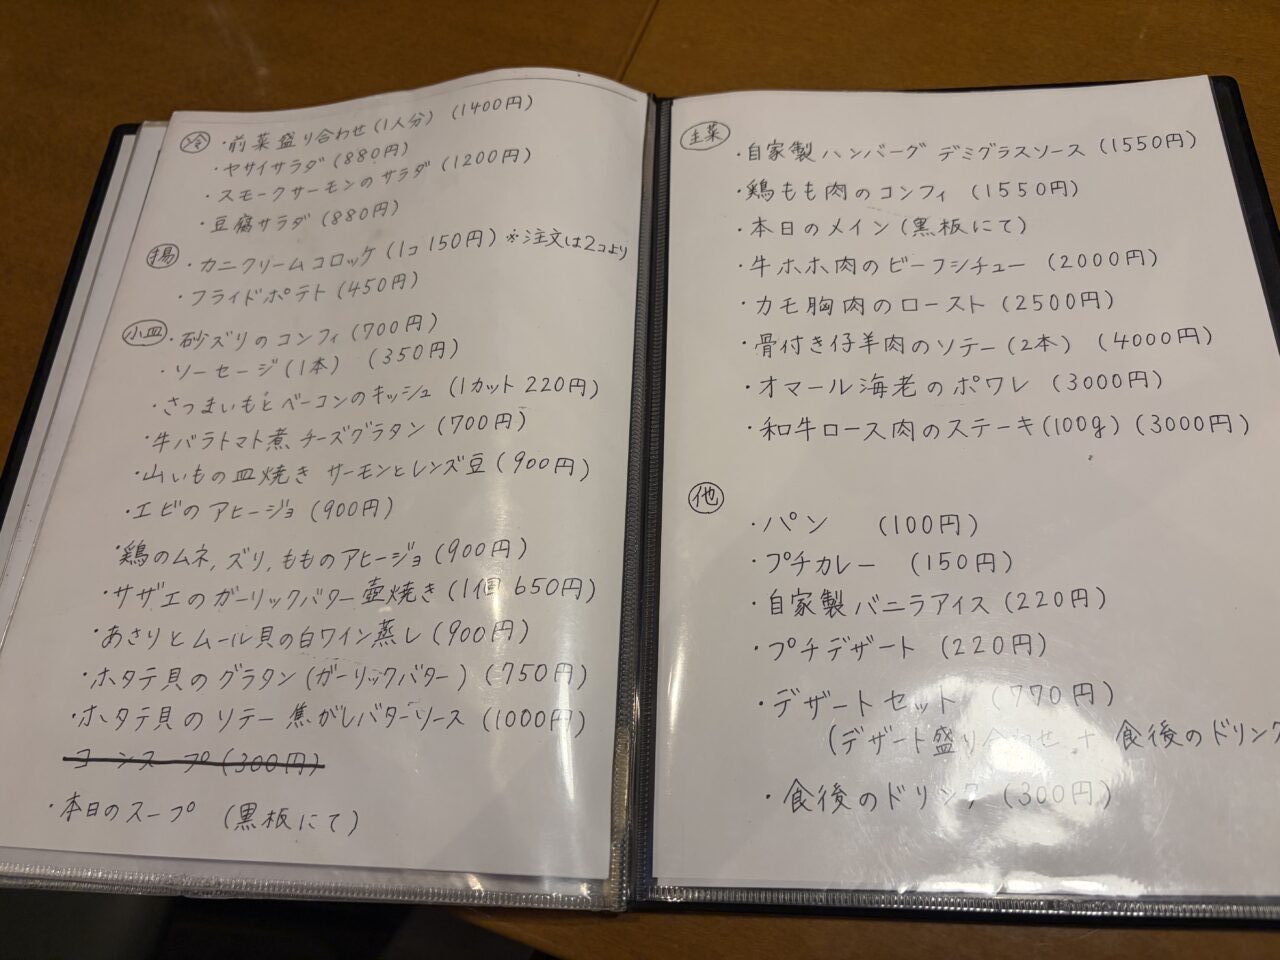 冷
・前菜盛り合わせ(1人分) (1400円)
・ヤサイサラダ(880円)
・スモークサーモンのサラダ(1200円)
・豆腐サラダ(880円)
揚
・カニクリームコロッケ(1コ150円)※注文は2コより
・フライドポテト(450円)
小皿
・砂ズリのコンフィ(700円)
・ソーセージ(1本) (350円)
・さつまいもとベーコンのキッシュ(1カット220円)
・牛バラトマト煮チーズグラタン(700円)
・山いもの皿焼き サーモンとレンズ豆(900円)
・エビのアヒージョ(900円)
・鶏のムネ,ズリ,もものアヒージョ(900円)
・サザエのガーリックバター壺焼き(1個650円)
・あさりとムール貝の白ワイン蒸し(900円)
・ホタテ貝のグラタン(ガーリックバター)(750円)
・ホタテ貝のソテー 焦がしバターソース(1000円)
コーンスープ(300円)
・本日のスープ (黒板にて)
主菜
・自家製ハンバーグ デミグラスソース(1550円)
・鶏もも肉のコンフィ(1550円)
・本日のメイン(黒板にて)
・牛ホホ肉のビーフシチュー(2000円)
・カモ胸肉のロースト(2500円)
・骨付き仔羊肉のソテー(2本) (4000円)
・オマール海老のポワレ(3000円)
・和牛ロース肉のステーキ(100g)(3000円)
他
・パン (100円)
・プチカレー (150円)
・自家製バニラアイス(220円)
・プチデザート(220円)
・デザートセット (770円)
(デザート盛り合わせ + 食後のドリンク
・食後のドリンク(300円)